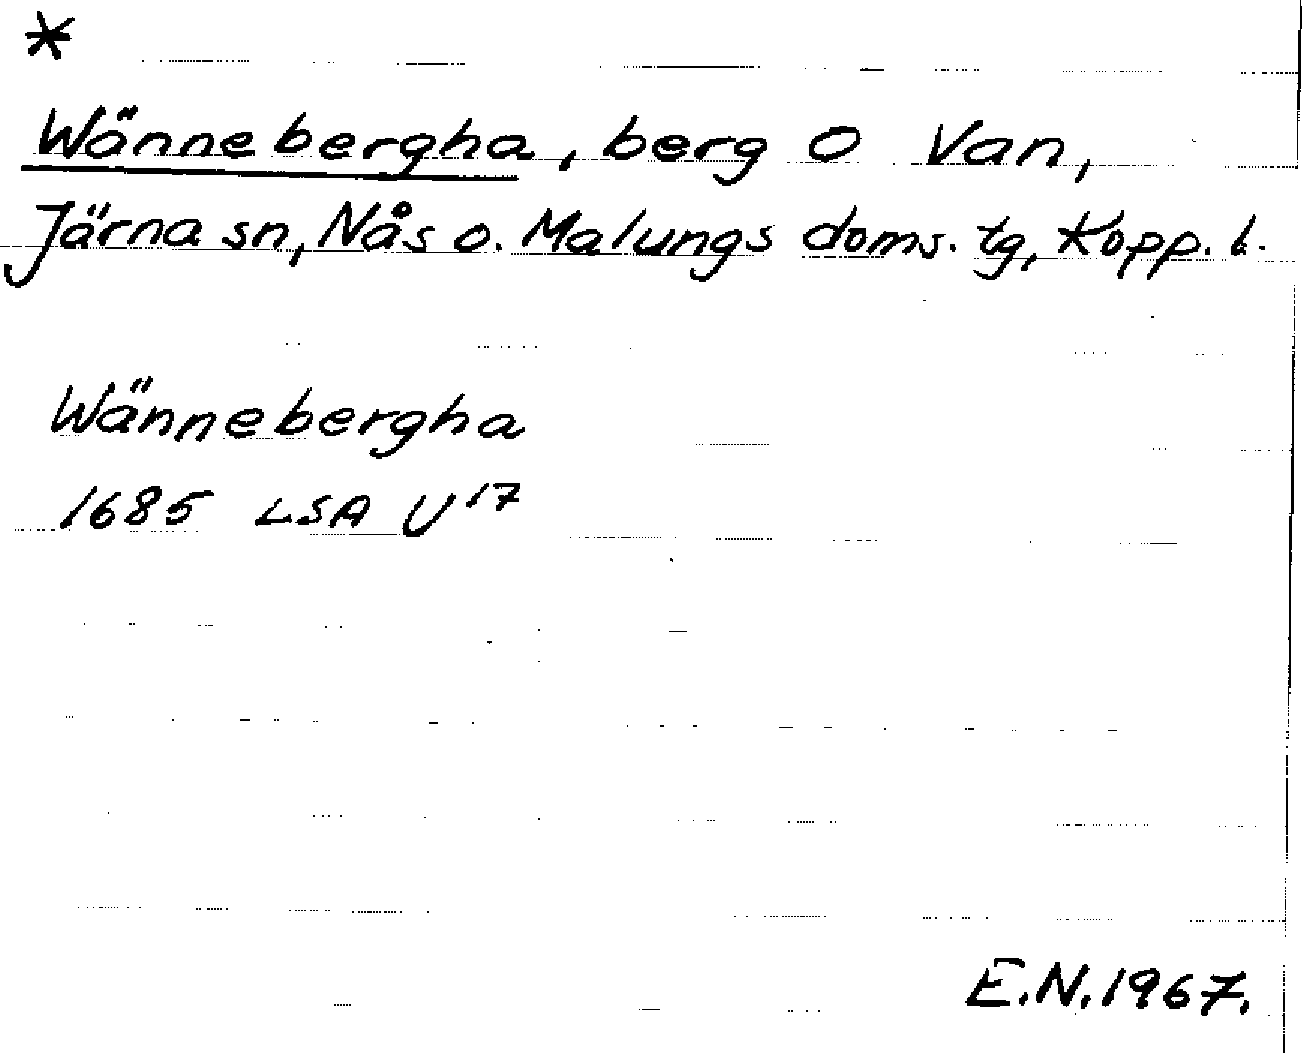 *
Wännebergha, berg O Van,
Järna sn, Nås o. Malungs doms. tg, Kopp. l.
Wännebergha
1685 LSA U¹⁷
E.N. 1967.